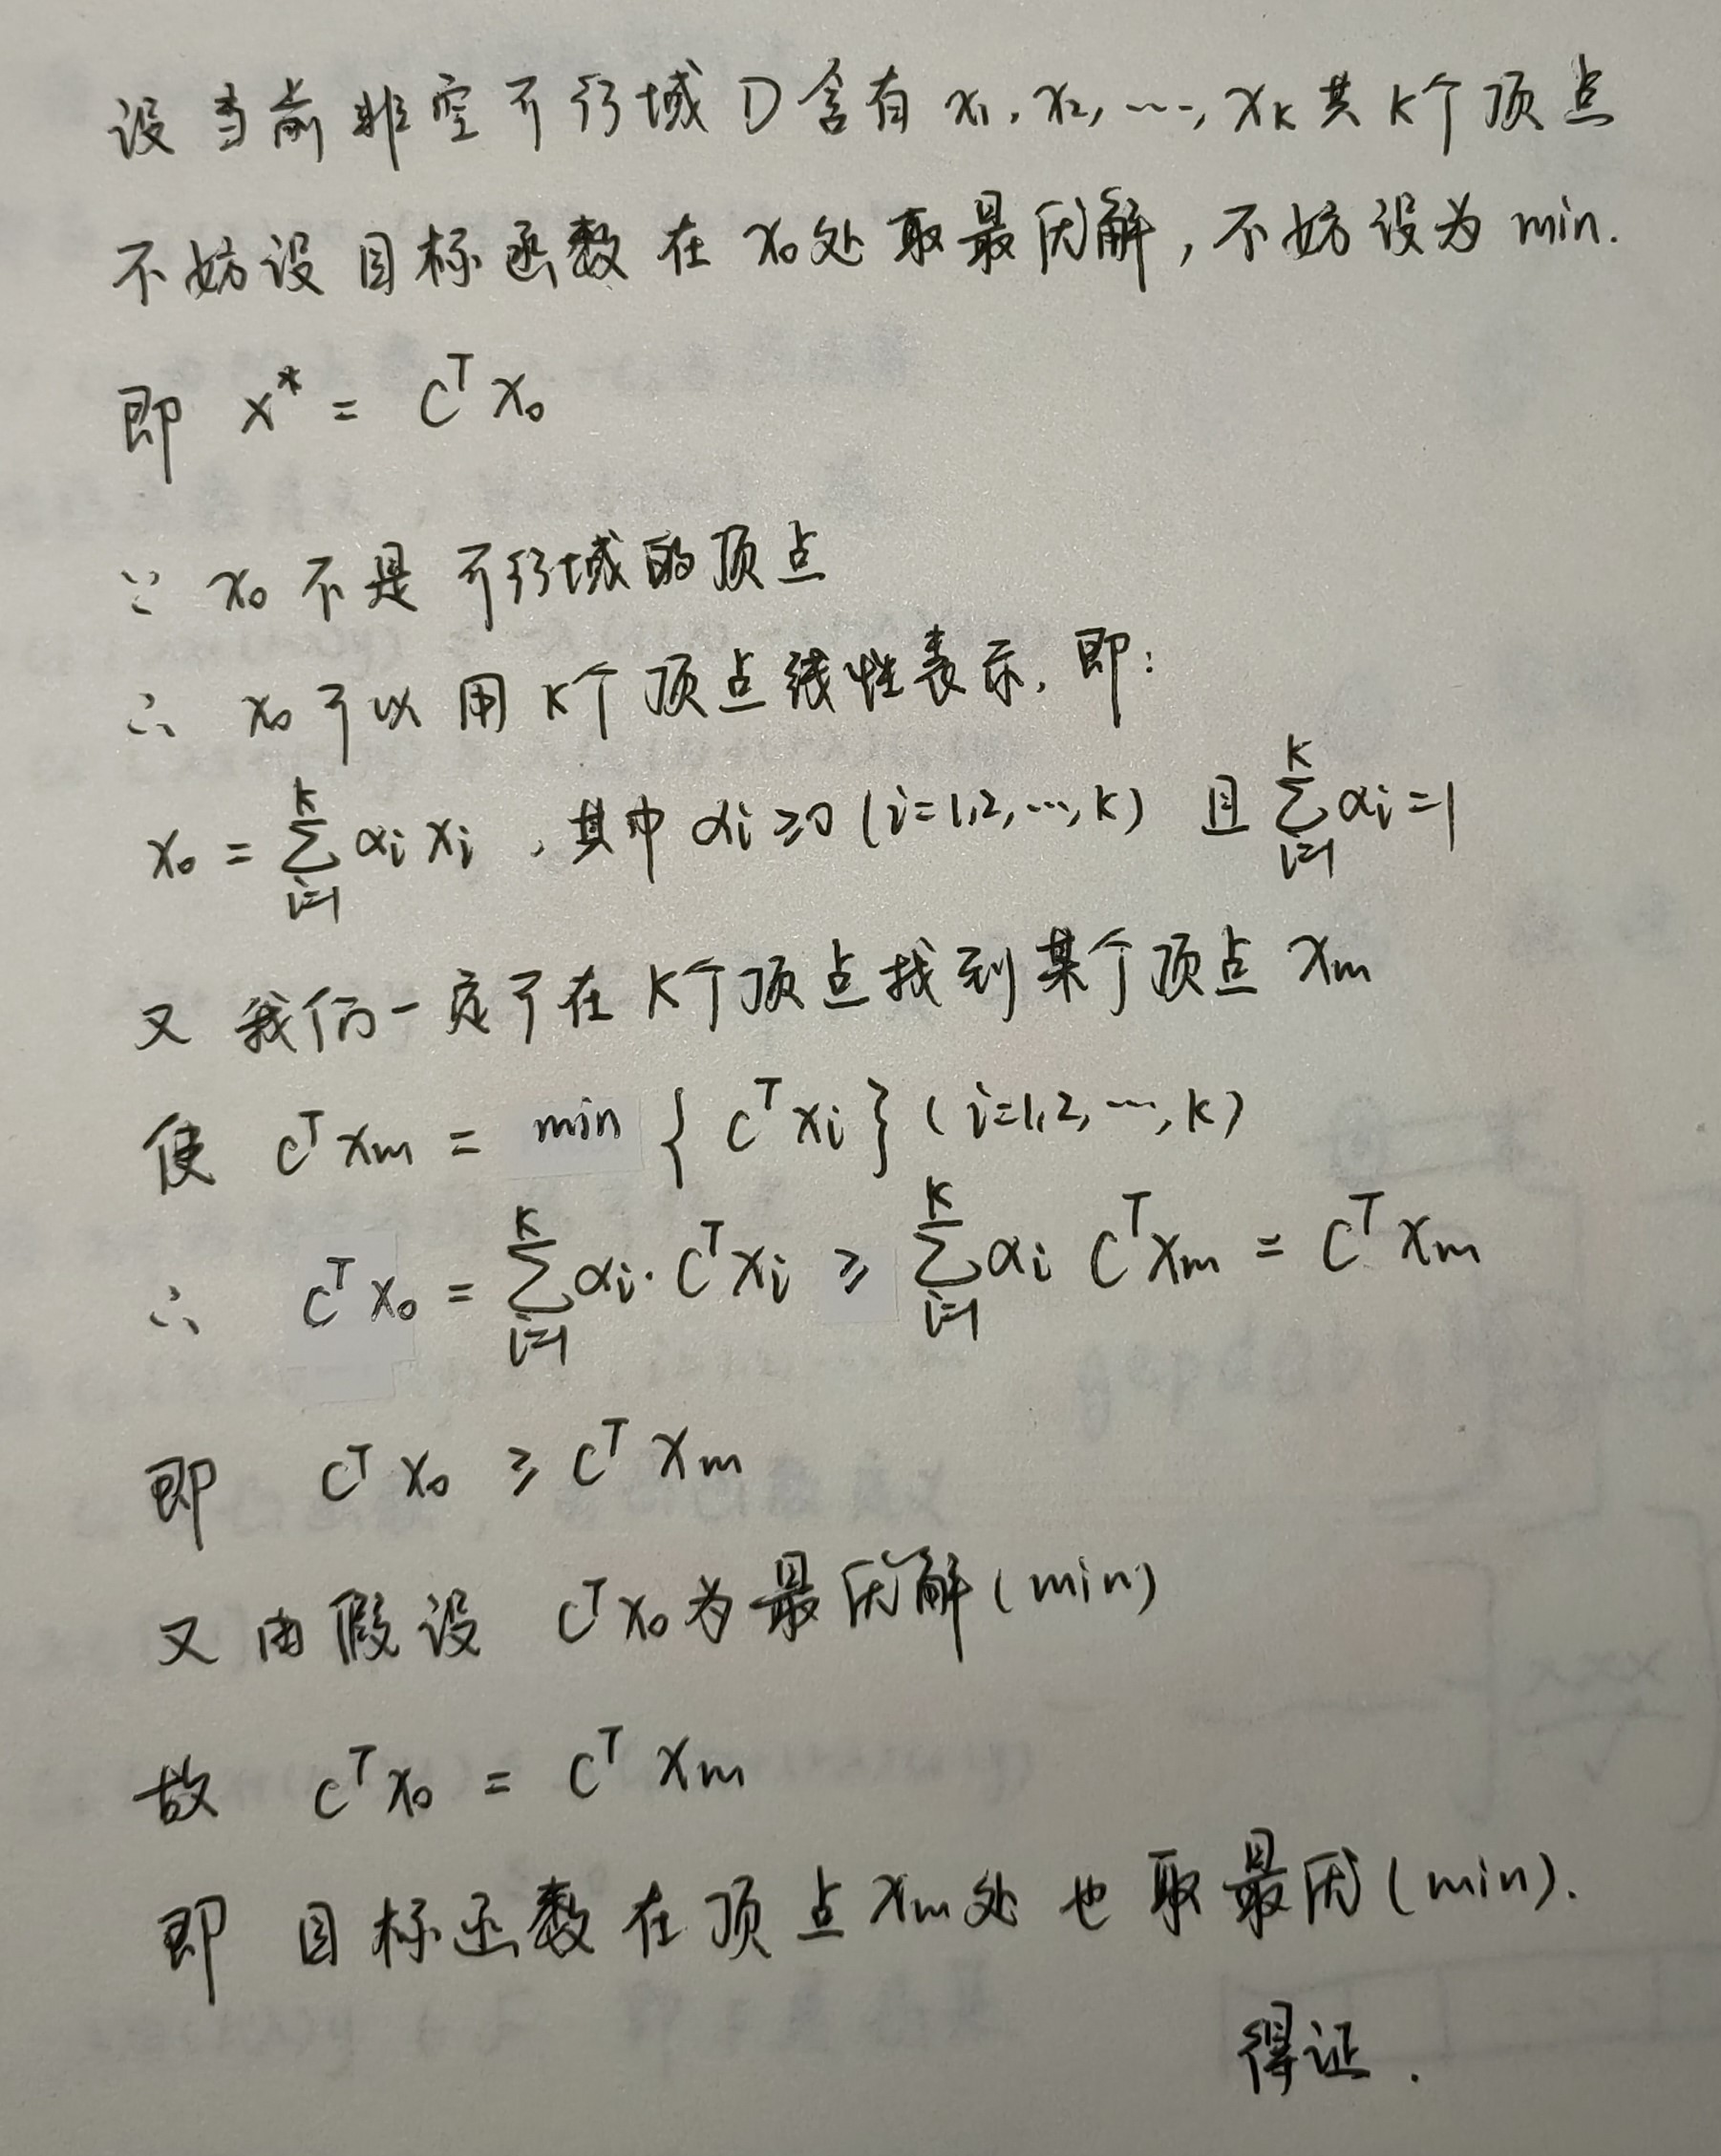 设当前非空可行域 D 含有 x₁, x₂, ⋯, xₖ 共 k个顶点
不妨设目标函数在 x₀处取最优解, 不妨设为 min.
即 x* = Cᵀx₀
∵ x₀ 不是可行域的顶点
∴ x₀ 可以用 k个顶点线性表示, 即:
x₀ = ∑_{i=1}^{k} αᵢxᵢ , 其中 αᵢ≥0 (i=1,2,⋯,k) 且 ∑_{i=1}^{k} αᵢ=1
又 我们一定可在 k个顶点找到某个顶点 xₘ
使 Cᵀxₘ = min { Cᵀxᵢ } (i=1,2,⋯,k)
∴ Cᵀx₀ = ∑_{i=1}^{k} αᵢ·Cᵀxᵢ ≥ ∑_{i=1}^{k} αᵢ Cᵀxₘ = Cᵀxₘ
即 Cᵀx₀ ≥ Cᵀxₘ
又由假设 Cᵀx₀为最优解(min)
故 Cᵀx₀ = Cᵀxₘ
即 目标函数在顶点 xₘ处也取最优(min).
得证.